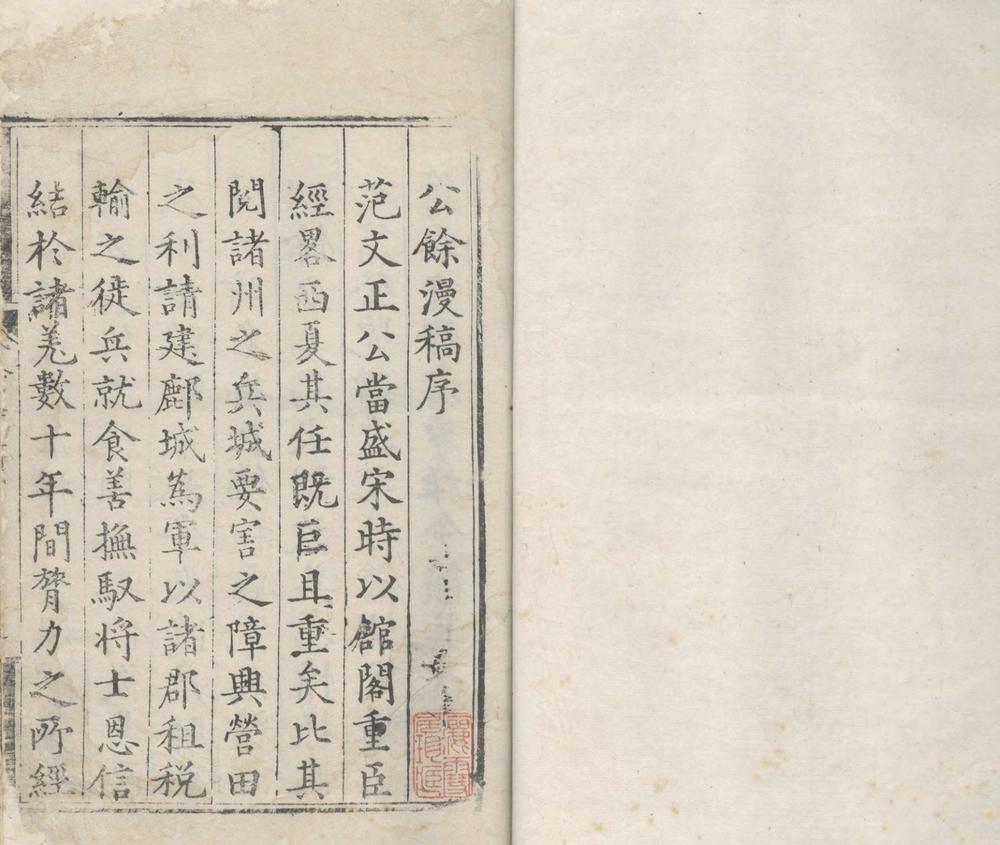 公餘漫稿序
范文正公當盛宋時以館閣重臣
經畧西夏其任既巨且重矣比其
閱諸州之兵城要害之障興營田
之利請建鄜城為軍以諸郡租税
輸之徙兵就食善撫馭将士恩信
結於諸羌數十年間膂力之所經